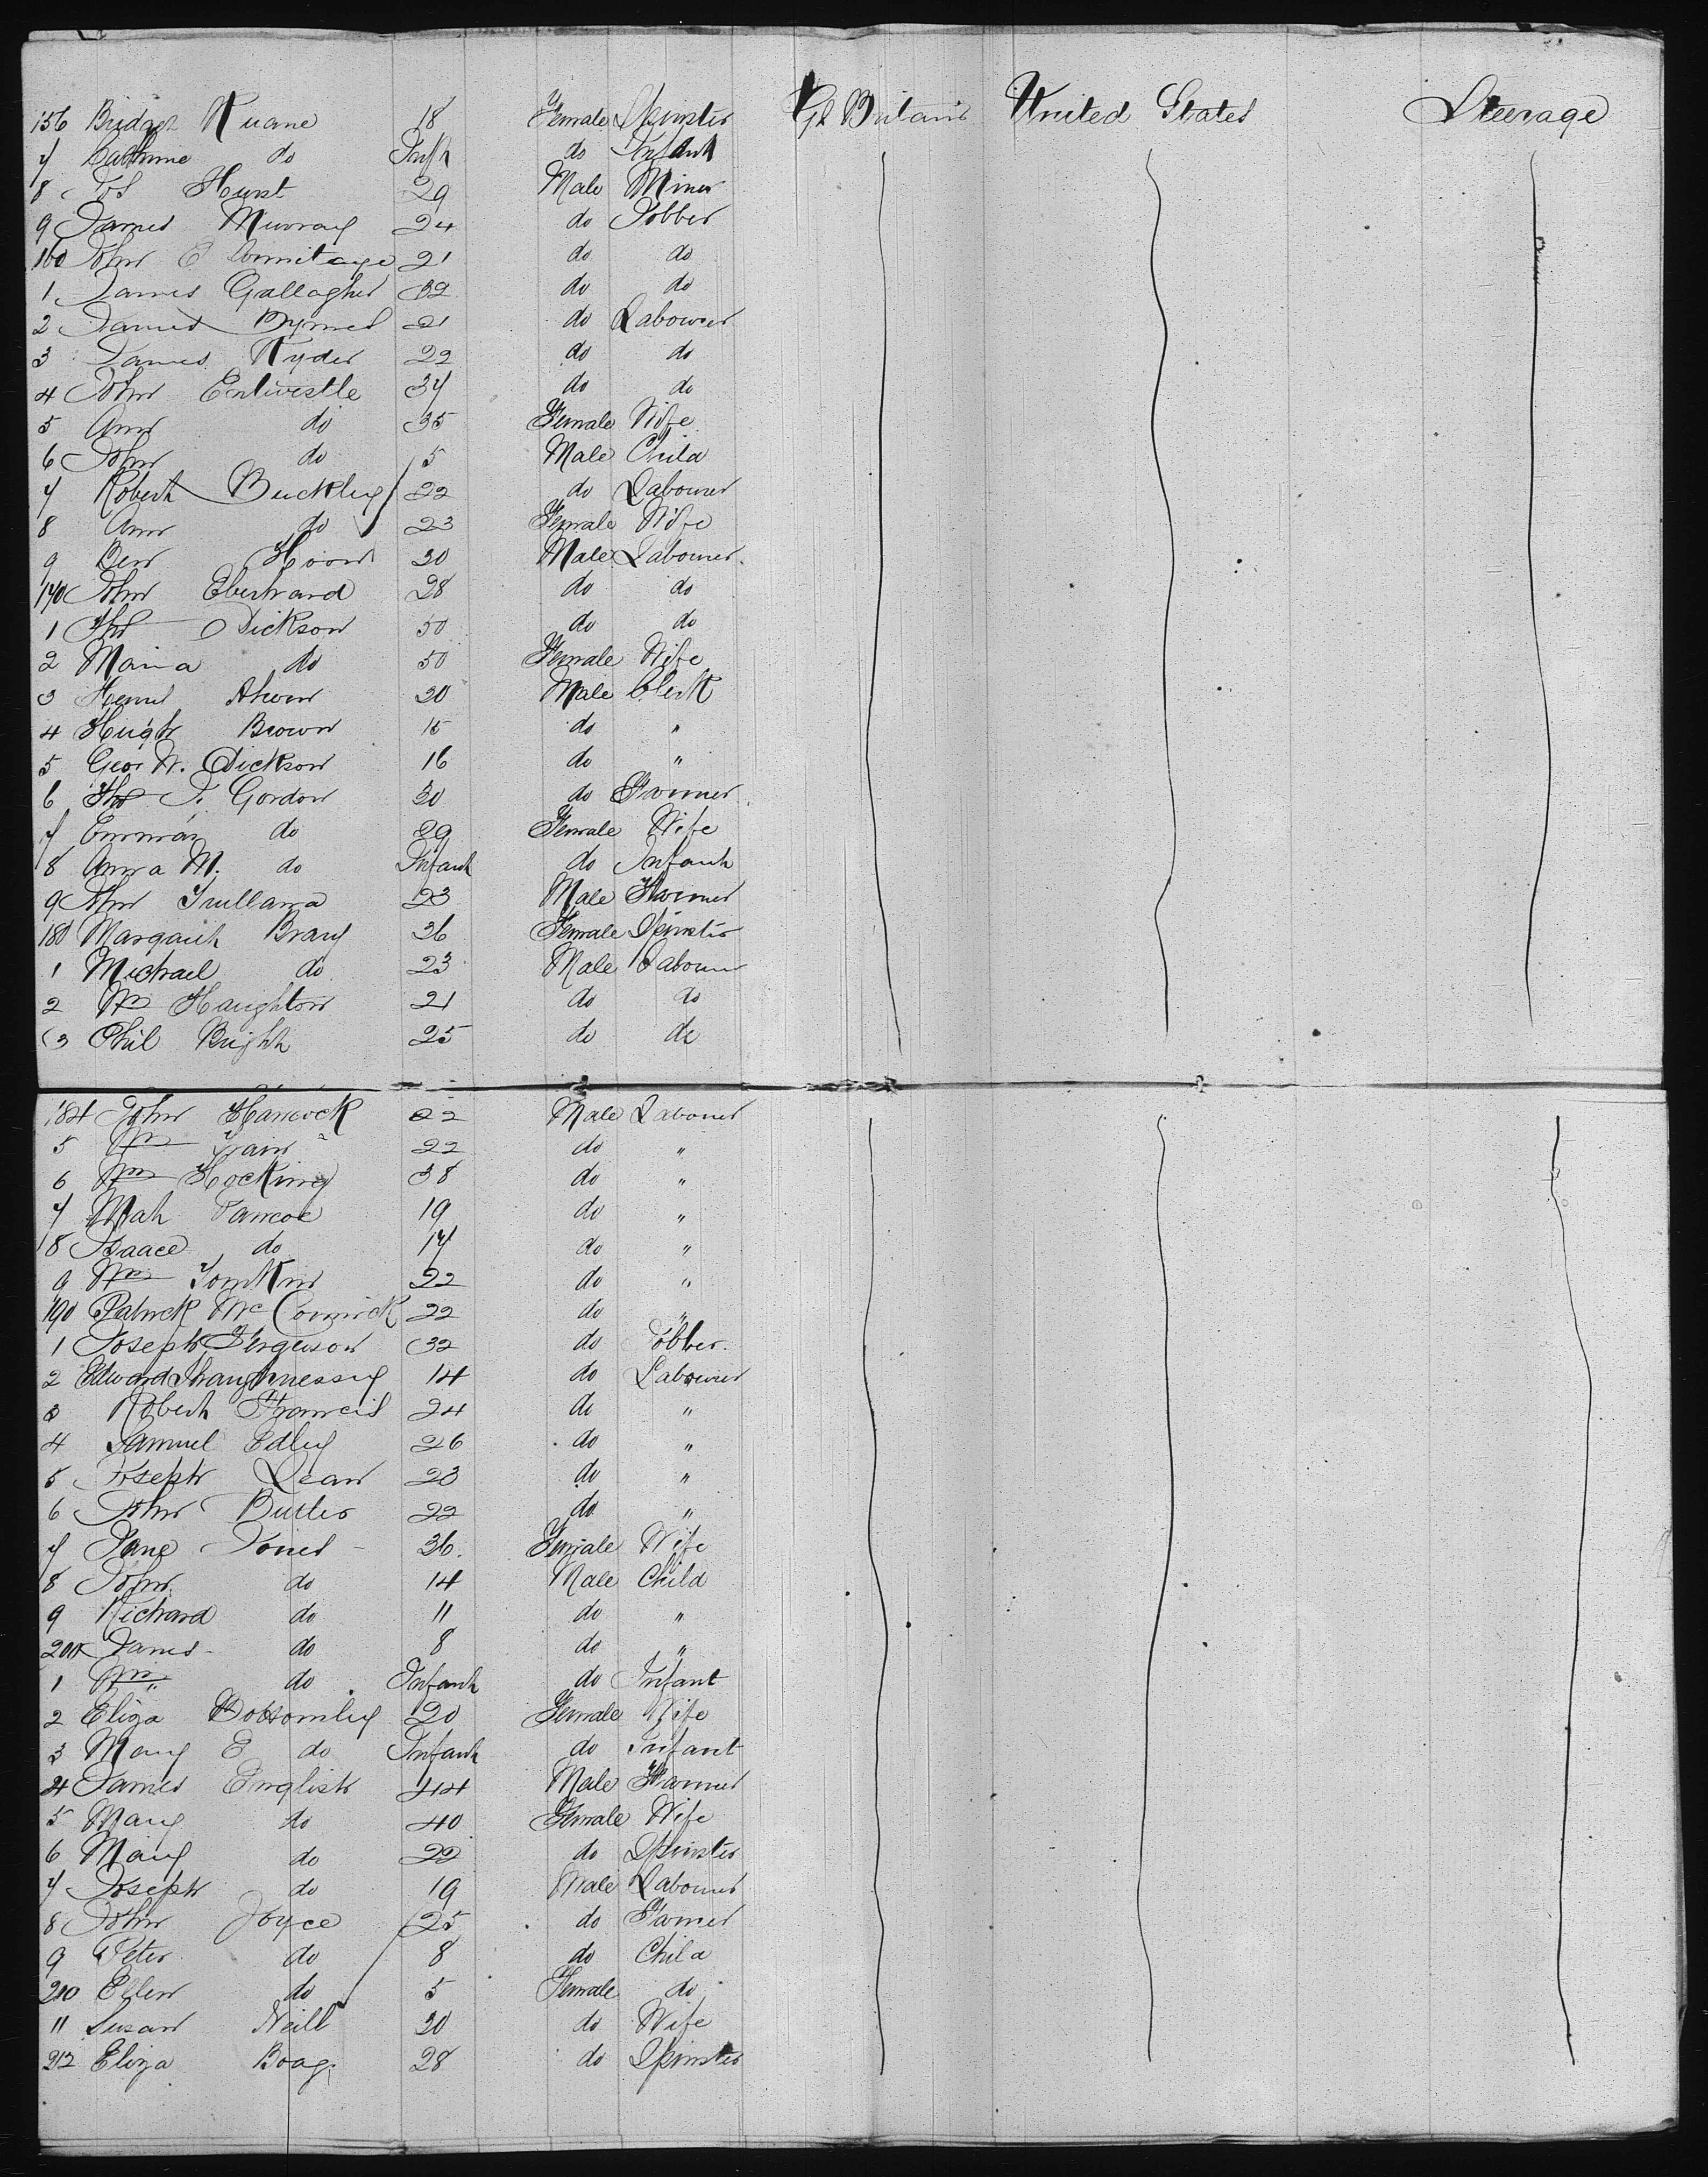 156 Bridget Ruane 18 Female Spinster Gt Britain United States Steerage
7 Catherine do Inft do Infant
8 Jos Hurst 29 Male Miner
9 James Murray 24 do Jobber
160 John E Armitage 21 do do
1 James Gallagher 32 do do
2 James Byrnes 21 do Labourer
3 James Ryder 22 do do
4 John Entwistle 37 do do
5 Ann do 35 Female Wife
6 John do 5 Male Child
7 Robert Buckley 22 do Labourer
8 Ann do 23 Female Wife
9 Ben 30 Male Labourer
170 John 28 do do
1 Thos Dickson 50 do do
2 Maria do 50 Female Wife
3 20 Male Clerk
4 Hugh Brown 15 do "
5 Geo W. Dickson 16 do "
6 Thos J. Gordon 30 do Farmer
7 Emma do 29 Female Wife
8 Anna M. do Infant do Infant
9 John 23 Male Farmer
180 Margaret Bray 26 Female Spinster
1 Michael do 23 Male Labourer
2 Wm Haughton 21 do do
3 Phil Bright 25 do do
184 John Hancock 22 Male Labourer
5 Wm 22 do "
6 Wm Hocking 38 do "
7 Mat Pancoe 19 do "
8 Isaace do 17 do "
9 Wm Tomkin 22 do "
190 Patrick McCormick 22 do "
1 Joseph Ferguson 32 do Jobber.
2 Edward Shaughnessy 14 do Labourer
3 Robert Francis 24 do "
4 Samuel Edley 26 do "
5 Joseph Dean 23 do "
6 John Butler 22 do "
7 Jane Jones 36. Female Wife
8 John do 14 Male Child
9 Richard do 11 do "
200 James do 8 do "
1 Wm do Infant do Infant
2 Eliza Bottomley 20 Female Wife
3 Mary E do Infant do Infant
4 James English 44 Male Farmer
5 Mary do 40 Female Wife
6 Mary do 22 do Spinster
7 Joseph do 19 Male Labourer
8 John Joyce 25 do Farmer
9 Peter do 8 do Child
210 Ellen do 5 Female do
11 Susan Neill 20 do Wife
212 Eliza Boag. 28 do Spinster